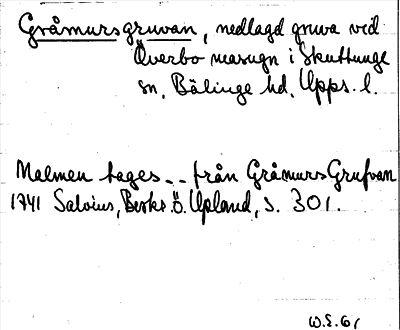 Gråmursgruvan, nedlagd gruva vid
Överbo masugn i Skuttunge
sn, Bälinge hd. Upps. l.
Malmen tages -- från GråmursGrufvan
1741 Salvius, Beskr. ö. Upland, s. 301.
W.E. 61